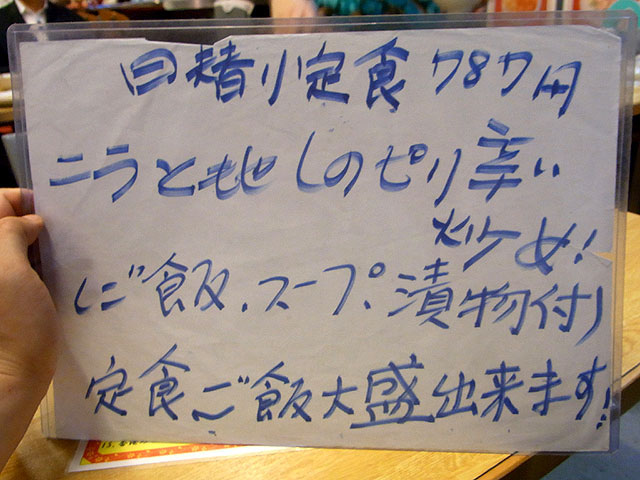 日替り定食787円
ニラともやしのピリ辛い
炒め!
(ご飯、スープ、漬物付)
定食ご飯大盛出来ます!